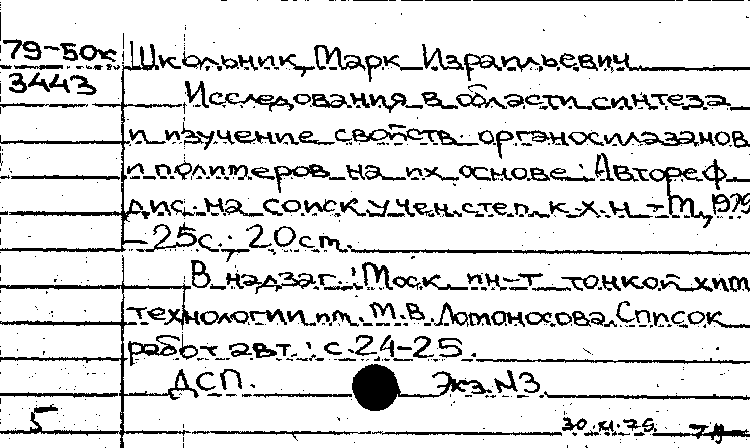 79-50к Школьник, Марк Израильевич
3443
Исследования в области синтеза
и изучение свойств органосилазанов
и полимеров на их основе : Автореф.
дис. на соиск. учен. степ. к.х.н. - М., 1979
- 25с.; 20см.
В надзаг.: Моск. ин-т тонкой хим.
технологии им. М.В. Ломоносова. Список
работ авт.: с. 24-25.
ДСП. Экз. N3.
5